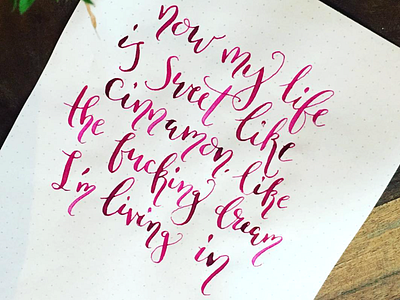 now my life
is sweet like
cinnamon. like
the fucking dream
I'm living in